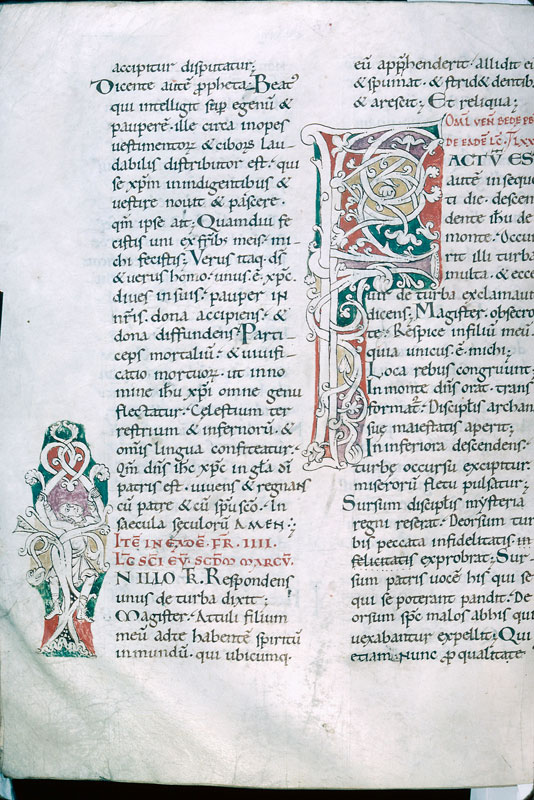 accipitur disputatur;
Dicente autē ꝓpheta; Beatꝰ
qui intelligit sup egenū &
pauperē. ille circa inopes
uestimentoꝝ & ciboꝝ lau-
dabilis distributor est. qui
se xp̄m in indigentibus &
uestire nouit & pascere.
qm̄ ipse ait; Quamdiu fe
cistis uni ex fr̄ib; meis. mi-
chi fecistis; Verus itaq. ds̄
& uerus homo. unus. ē. xp̄c.
diues in suis. pauper in
nr̄is. dona accipiens. &
dona diffundens; Parti-
ceps mortaliū. & uiuifi-
catio mortuoꝝ. ut in no
mine ih̄u xp̄i omne genu
flectatur. Celestium ter
restrium & infernorū. &
om̄is lingua confiteatur.
Qm̄ dn̄s ih̄c xp̄c in gl̄a dī
patris est. uiuens & regnans
cū patre & cū sp̄u sc̄o. In
saecula seculorū AMEN.;
ITĒ IN EADĒ. FR. IIII.
LC̄ SC̄I EV̄. SC̄DM̄ MARCV̄.
IN ILLO TR̄. Respondens
unus de turba dixit;
Magister. Attuli filium
meū ad te habentē spiritū
inmundū. qui ubicumq.
eū app̄henderit. allidit eū
& spumat. & strid& dentib
& arescit; Et reliqua;
OML̄ VEN̄ BEDE PB
DE EADĒ LC̄. LXX
FACTV̄ ES
autē in seque
ti die. descen
dente ih̄u de
monte. Occur
rit illi turba
multa. & ecce
uir de turba exclamauit
dicens; Magister. obsecro
te. Respice in filiū meū.
quia unicus. ē. michi;
Loca rebus congruunt;
In monte dn̄s orat. trans
formatᷣ. Discip̄lis archan
sue maiestatis aperit;
In inferiora descendens.
turbe occursu excipitur.
miseroꝝ fletu pulsatur;
Sursum discip̄lis mysteria
regni reserat. Deorsum tur
bis peccata infidelitatis in
felicitatis exprobrat; Sur-
sum patris uocē his qui se
qui se poterant pandit. De
orsum sp̄c malos ab his qui
uexabantur expellit; Qui
etiam nunc ꝓ qualitate